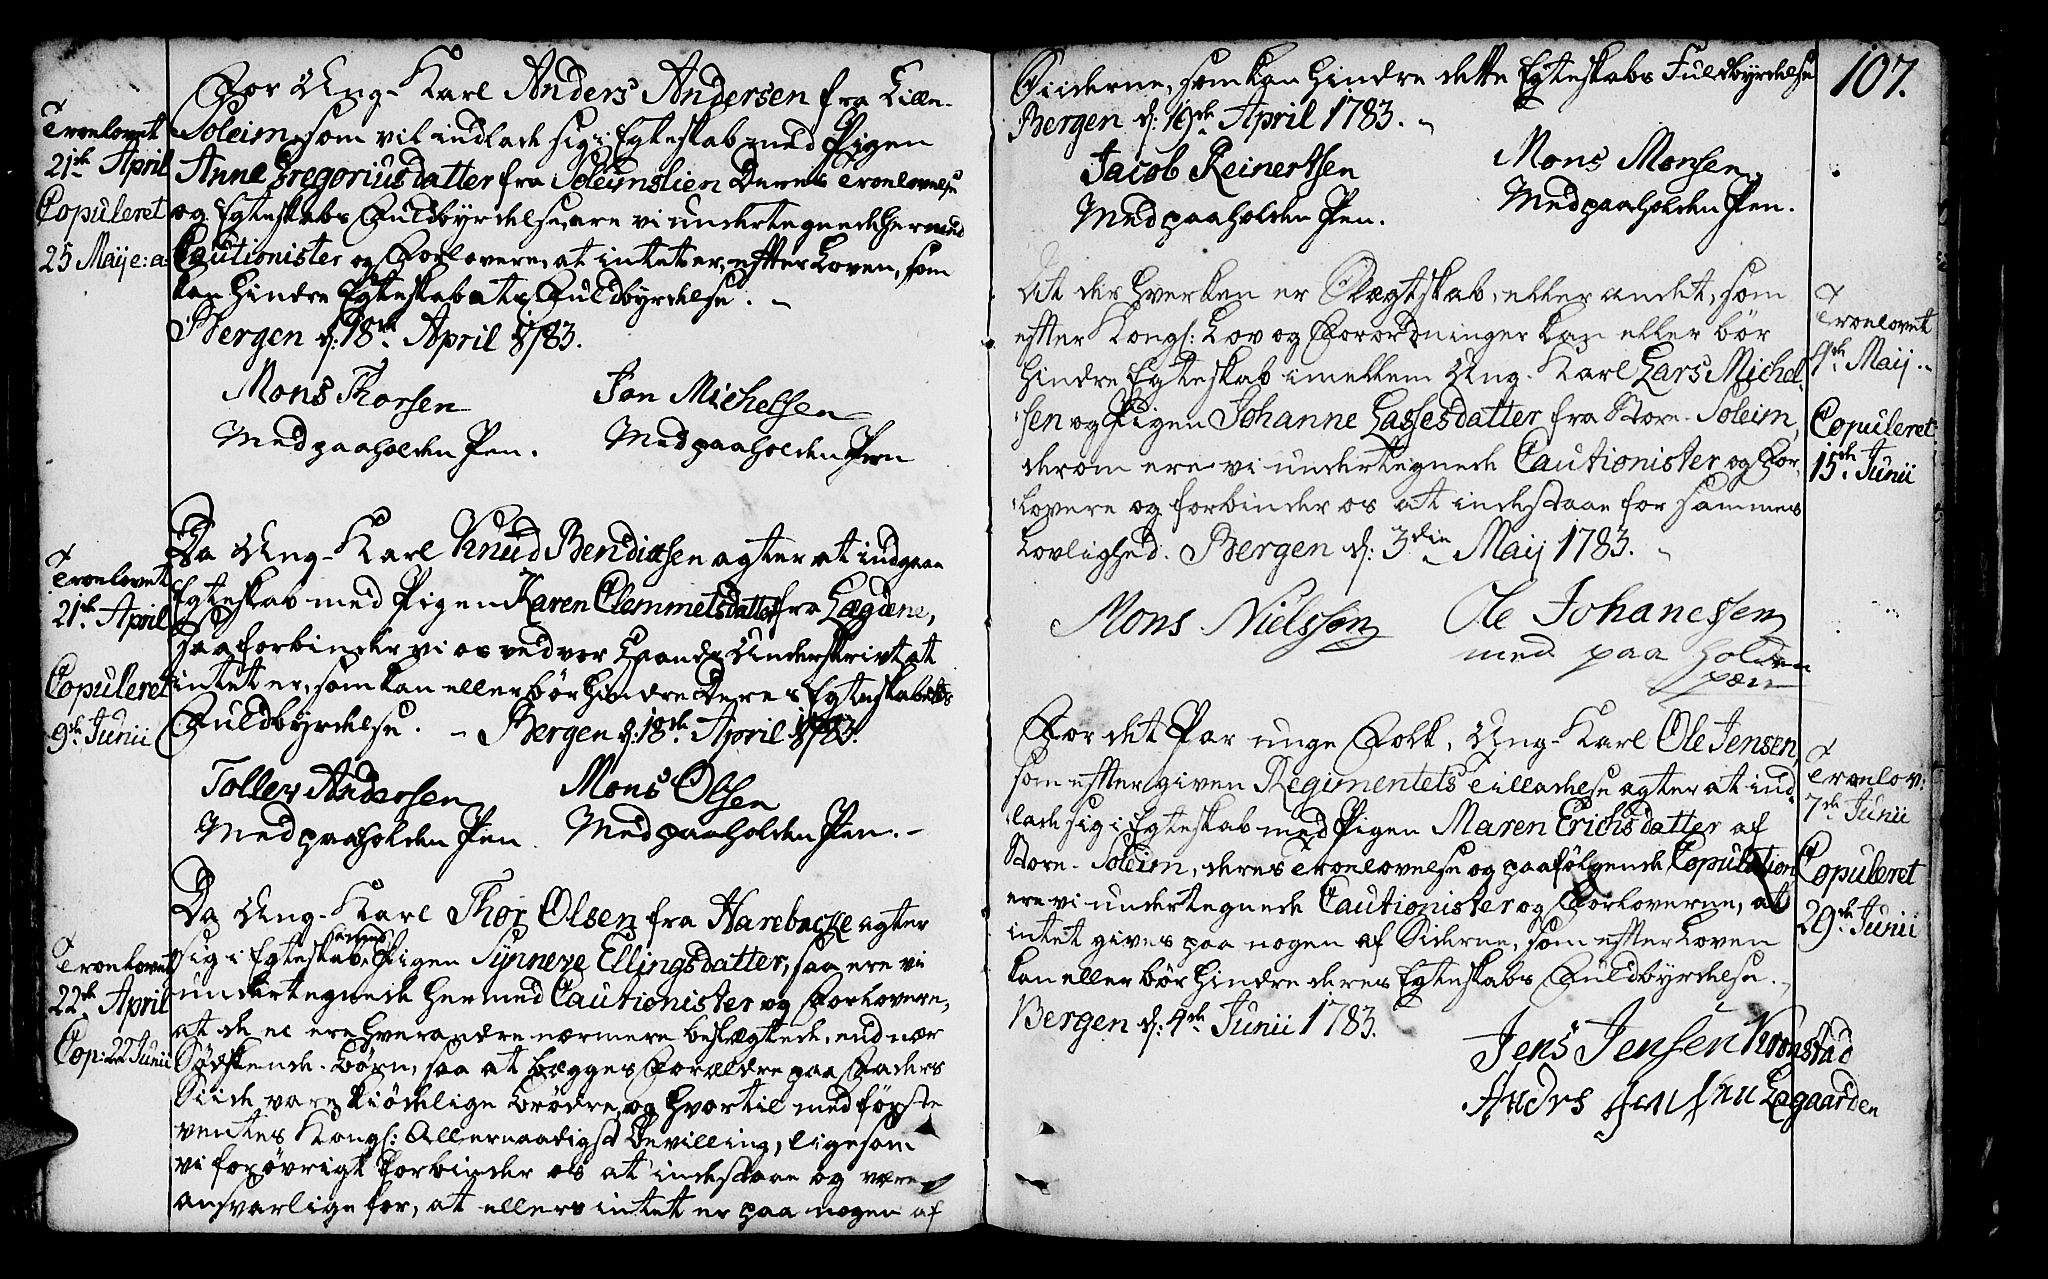 For Ung-Karl Anders Andersen fra Liæn-
Soleim, som vil indlade sig i Egteskab med Pigen
Anna Gregoriusdatter fra Soleimslien Deres Troelovelse
og Egteskabs Fuldbyrdelse, are vi undertegnede hermed
Cautionister og Forlovere, at intet er, efter Loven, som
kan hindre Egteskabets Fuldbyrdelse. -
Bergen d: 18de April 1783.
Mons Thorsen
Jon Michelsen
Med paaholden Pen.
Med paaholden Pen
Troelovet
21de April
Copuleret
25 Maij e: a:
Da Ung-Karl Knud Bendixsen agter at indgaae
Egteskab med Pigen Karen Clemmetsdatter fra Lægdene,
saa forbinder vi os ved vor Haands Underskrivt at
intet er, som kan eller bør hindre Deres Egteskabets
Fuldbyrdelse. - Bergen d: 18de April 1783.
Tollev Andersen
Mons Olsen
Med paaholden Pen
Med paaholden Pen. -
Troelovet
21de April
Copuleret
9de Junii
Da Ung-Karl Thor Olsen fra Harebacke agter
sig i Egteskab med Pigen Synneve Ellingsdatter, saa ere vi
undertegnede hermed Cautionister og Forlovere,
at de ei ere hverandre nærmere beslægtede, end nær
Sødskende-børn, saa at begges Forældre paa Faders
Siide vare kiødelige Brødre, og hvortil med første
ventes Kongl: Allernaadigst Bevilling, ligesom
vi forøvrigt forbinder os at indestaae og være
ansvarlige for, at ellers intet er paa nogen af
Troelovet
22de April
Cop: 22 Junii
107.
Siiderne, som kan hindre dette Egteskabs Fuldbyrdelse
Bergen d: 19de April 1783. -
Jacob Reinertsen
Mons Monsen
Med paaholden Pen.
Med paaholden Pen.
At der hverken er Slægtskab, eller andet, som
efter Kongl: Lov og Forordninger kan eller bør
hindre Egteskab imellem Ung-Karl Lars Michel-
sen og Pigen Johanne Lassesdatter fra Store-Soleim,
derom ere vi undertegnede Cautionister og For-
lovere og forbinder os at indestaae for sammes
Lovlighed. Bergen d: 3die Maij 1783. -
Mons Nielssøn
Ole Johanessen
med paa holden
pæn
Troelovet
4de Maij
Copuleret
15de Junii
For det Par unge Folk, Ung-Karl Ole Jensen,
som efter given Regimentets Tilladelse agter at ind-
lade sig i Egteskab med Pigen Maren Erichsdatter af
Store-Soleim, deres Troelovelse og paafølgende Copulation
ere vi undertegnede Cautionister og Forloverne, at
intet gives paa nogen af Siderne, som efter Loven
kan eller bør hindre deres Egteskabs Fuldbyrdelse. -
Bergen d: 4de Junii 1783.
Jens Jensen Kronstad
Anders Lagaarden
Troelov:
7de Junii
Copuleret
29de Junii